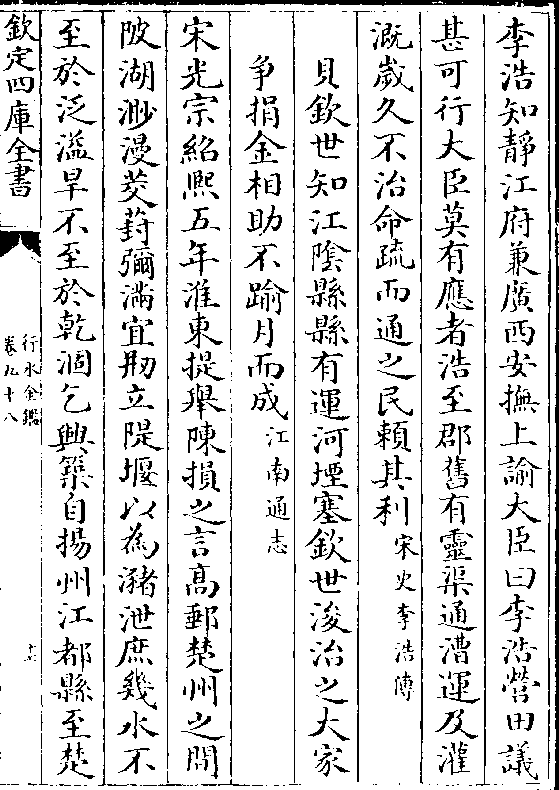 李浩知靜江府兼廣西安撫上諭大臣曰李浩營田議
甚可行大臣莫有應者浩至郡舊有靈渠通漕運及灌
溉歲久不治命疏而通之民賴其利宋史李浩傳
貝欽世知江陰縣縣有運河堙塞欽世浚治之大家
爭捐金相助不踰月而成江南通志
宋光宗紹熙五年淮東提舉陳損之言高郵楚州之間
陂湖渺漫茭葑彌滿宜刱立隄堰以為瀦泄庶幾水不
至於泛溢旱不至於乾涸乞興築自揚州江都縣至楚
欽定四庫全書
行水金鑑
卷九十八